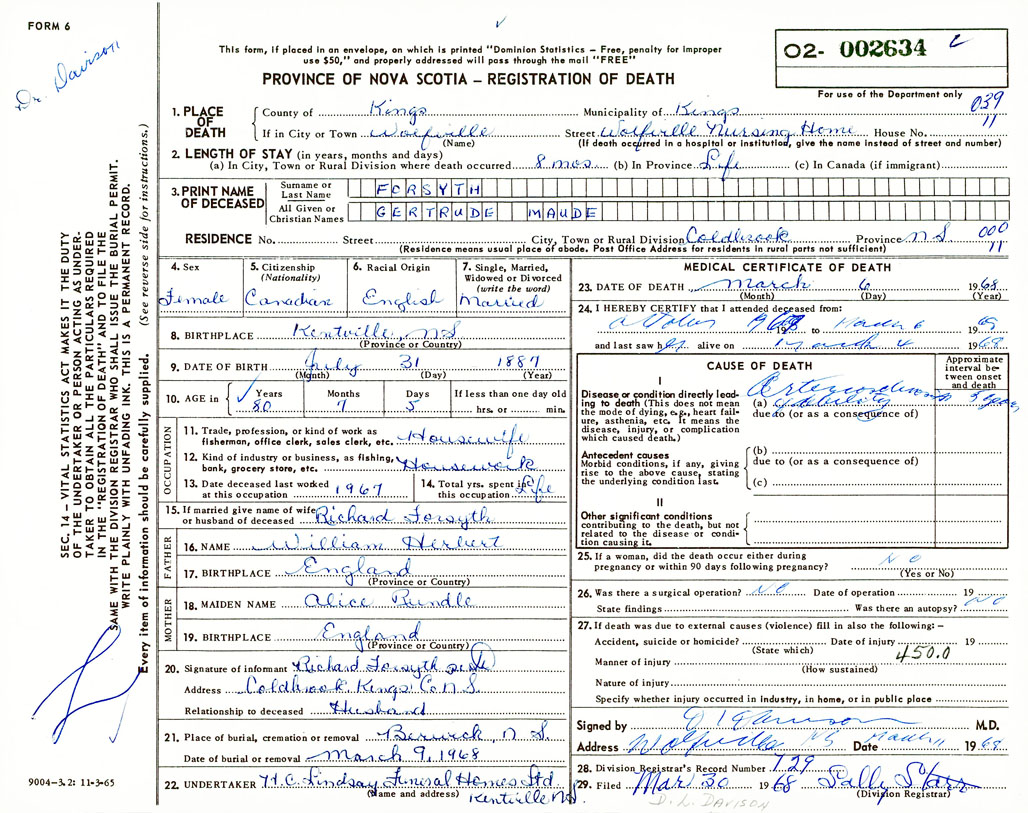 FORM 6
Dr. Davison
This form, if placed in an envelope, on which is printed "Dominion Statistics – Free, penalty for improper
use $50," and properly addressed will pass through the mail "FREE"
PROVINCE OF NOVA SCOTIA – REGISTRATION OF DEATH
O2- 002634
For use of the Department only
039
11
1. PLACE OF DEATH
County of Kings Municipality of Kings
If in City or Town Wolfville Street Wolfville Nursing Home House No.
(Name) (If death occurred in a hospital or institution, give the name instead of street and number)
2. LENGTH OF STAY (in years, months and days)
(a) In City, Town or Rural Division where death occurred 8 mos (b) In Province Life (c) In Canada (if immigrant)
3. PRINT NAME OF DECEASED
Surname or Last Name FORSYTH
All Given or Christian Names GERTRUDE MAUDE
RESIDENCE No. Street City, Town or Rural Division Coldbrook Province N S 000
(Residence means usual place of abode. Post Office Address for residents in rural parts not sufficient) 11
4. Sex Female
5. Citizenship (Nationality) Canadian
6. Racial Origin English
7. Single, Married, Widowed or Divorced (write the word) Married
8. BIRTHPLACE Kentville, N S
(Province or Country)
9. DATE OF BIRTH July 31 1887
(Month) (Day) (Year)
10. AGE in Years Months Days If less than one day old
80 7 5 hrs. or min.
OCCUPATION
11. Trade, profession, or kind of work as fisherman, office clerk, sales clerk, etc. Housewife
12. Kind of industry or business, as fishing, bank, grocery store, etc. Housework
13. Date deceased last worked at this occupation 1967
14. Total yrs. spent in this occupation Life
15. If married give name of wife or husband of deceased Richard Forsyth
FATHER
16. NAME William Herbert
17. BIRTHPLACE England
(Province or Country)
MOTHER
18. MAIDEN NAME Alice Rundle
19. BIRTHPLACE England
(Province or Country)
20. Signature of informant Richard Forsyth
Address Coldbrook Kings Co N.S.
Relationship to deceased Husband
21. Place of burial, cremation or removal Berwick, N S.
Date of burial or removal March 9, 1968
22. UNDERTAKER H.C. Lindsay Funeral Homes Ltd
(Name and address) Kentville N S.
MEDICAL CERTIFICATE OF DEATH
23. DATE OF DEATH March 6 1968
(Month) (Day) (Year)
24. I HEREBY CERTIFY that I attended deceased from:
October 19 to March 6 19
and last saw her alive on March 4 1968
CAUSE OF DEATH
Approximate interval between onset and death
I
Disease or condition directly leading to death (This does not mean the mode of dying, e.g., heart failure, asthenia, etc. It means the disease, injury, or complication which caused death.)
(a) debility
due to (or as a consequence of)
Antecedent causes
Morbid conditions, if any, giving rise to the above cause, stating the underlying condition last.
(b)
due to (or as a consequence of)
(c)
II
Other significant conditions
contributing to the death, but not related to the disease or condition causing it.
25. If a woman, did the death occur either during
pregnancy or within 90 days following pregnancy? NO
(Yes or No)
26. Was there a surgical operation? NO Date of operation 19
State findings Was there an autopsy? NO
27. If death was due to external causes (violence) fill in also the following: –
Accident, suicide or homicide? Date of injury 19
(State which) 450.0
Manner of injury
(How sustained)
Nature of injury
Specify whether injury occurred in industry, in home, or in public place
Signed by M.D.
Address Wolfville NS Date March 11 1968
28. Division Registrar's Record Number 729
29. Filed Mar 30 1968 Sally Starr
(Division Registrar)
D. L. DAVISON
9004-3.2: 11-3-65
SEC. 14 – VITAL STATISTICS ACT MAKES IT THE DUTY
OF THE UNDERTAKER OR PERSON ACTING AS UNDER-
TAKER TO OBTAIN ALL THE PARTICULARS REQUIRED
IN THE "REGISTRATION OF DEATH" AND TO FILE THE
SAME WITH THE DIVISION REGISTRAR WHO SHALL ISSUE THE BURIAL PERMIT.
WRITE PLAINLY WITH UNFADING INK. THIS IS A PERMANENT RECORD.
Every item of information should be carefully supplied. (See reverse side for instructions.)